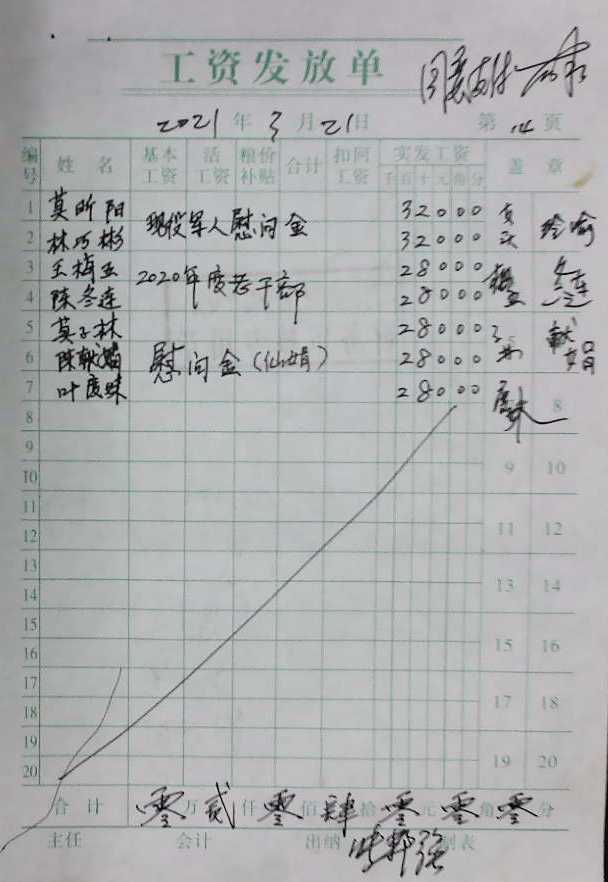 工资发放单
2021年3月21日 第14页
编号 姓名 基本工资 活工资 粮价补贴 合计 扣回工资 实发工资 千百十元角分 盖章
1 莫昕阳 现役军人慰问金 32000
2 林巧彬 32000
3 王梅玉 2020年度老干部 28000
4 陈冬连 28000 冬连
5 莫子林 28000
6 陈献娟 慰问金(仙娟) 28000 献娟
7 叶度妹 28000
8 8
9 9 10
10
11 11 12
12
13 13 14
14
15 15 16
16
17 17 18
18
19 19 20
20
合计 零万贰仟零佰肆拾零元零角零分
主任 会计 出纳 制表